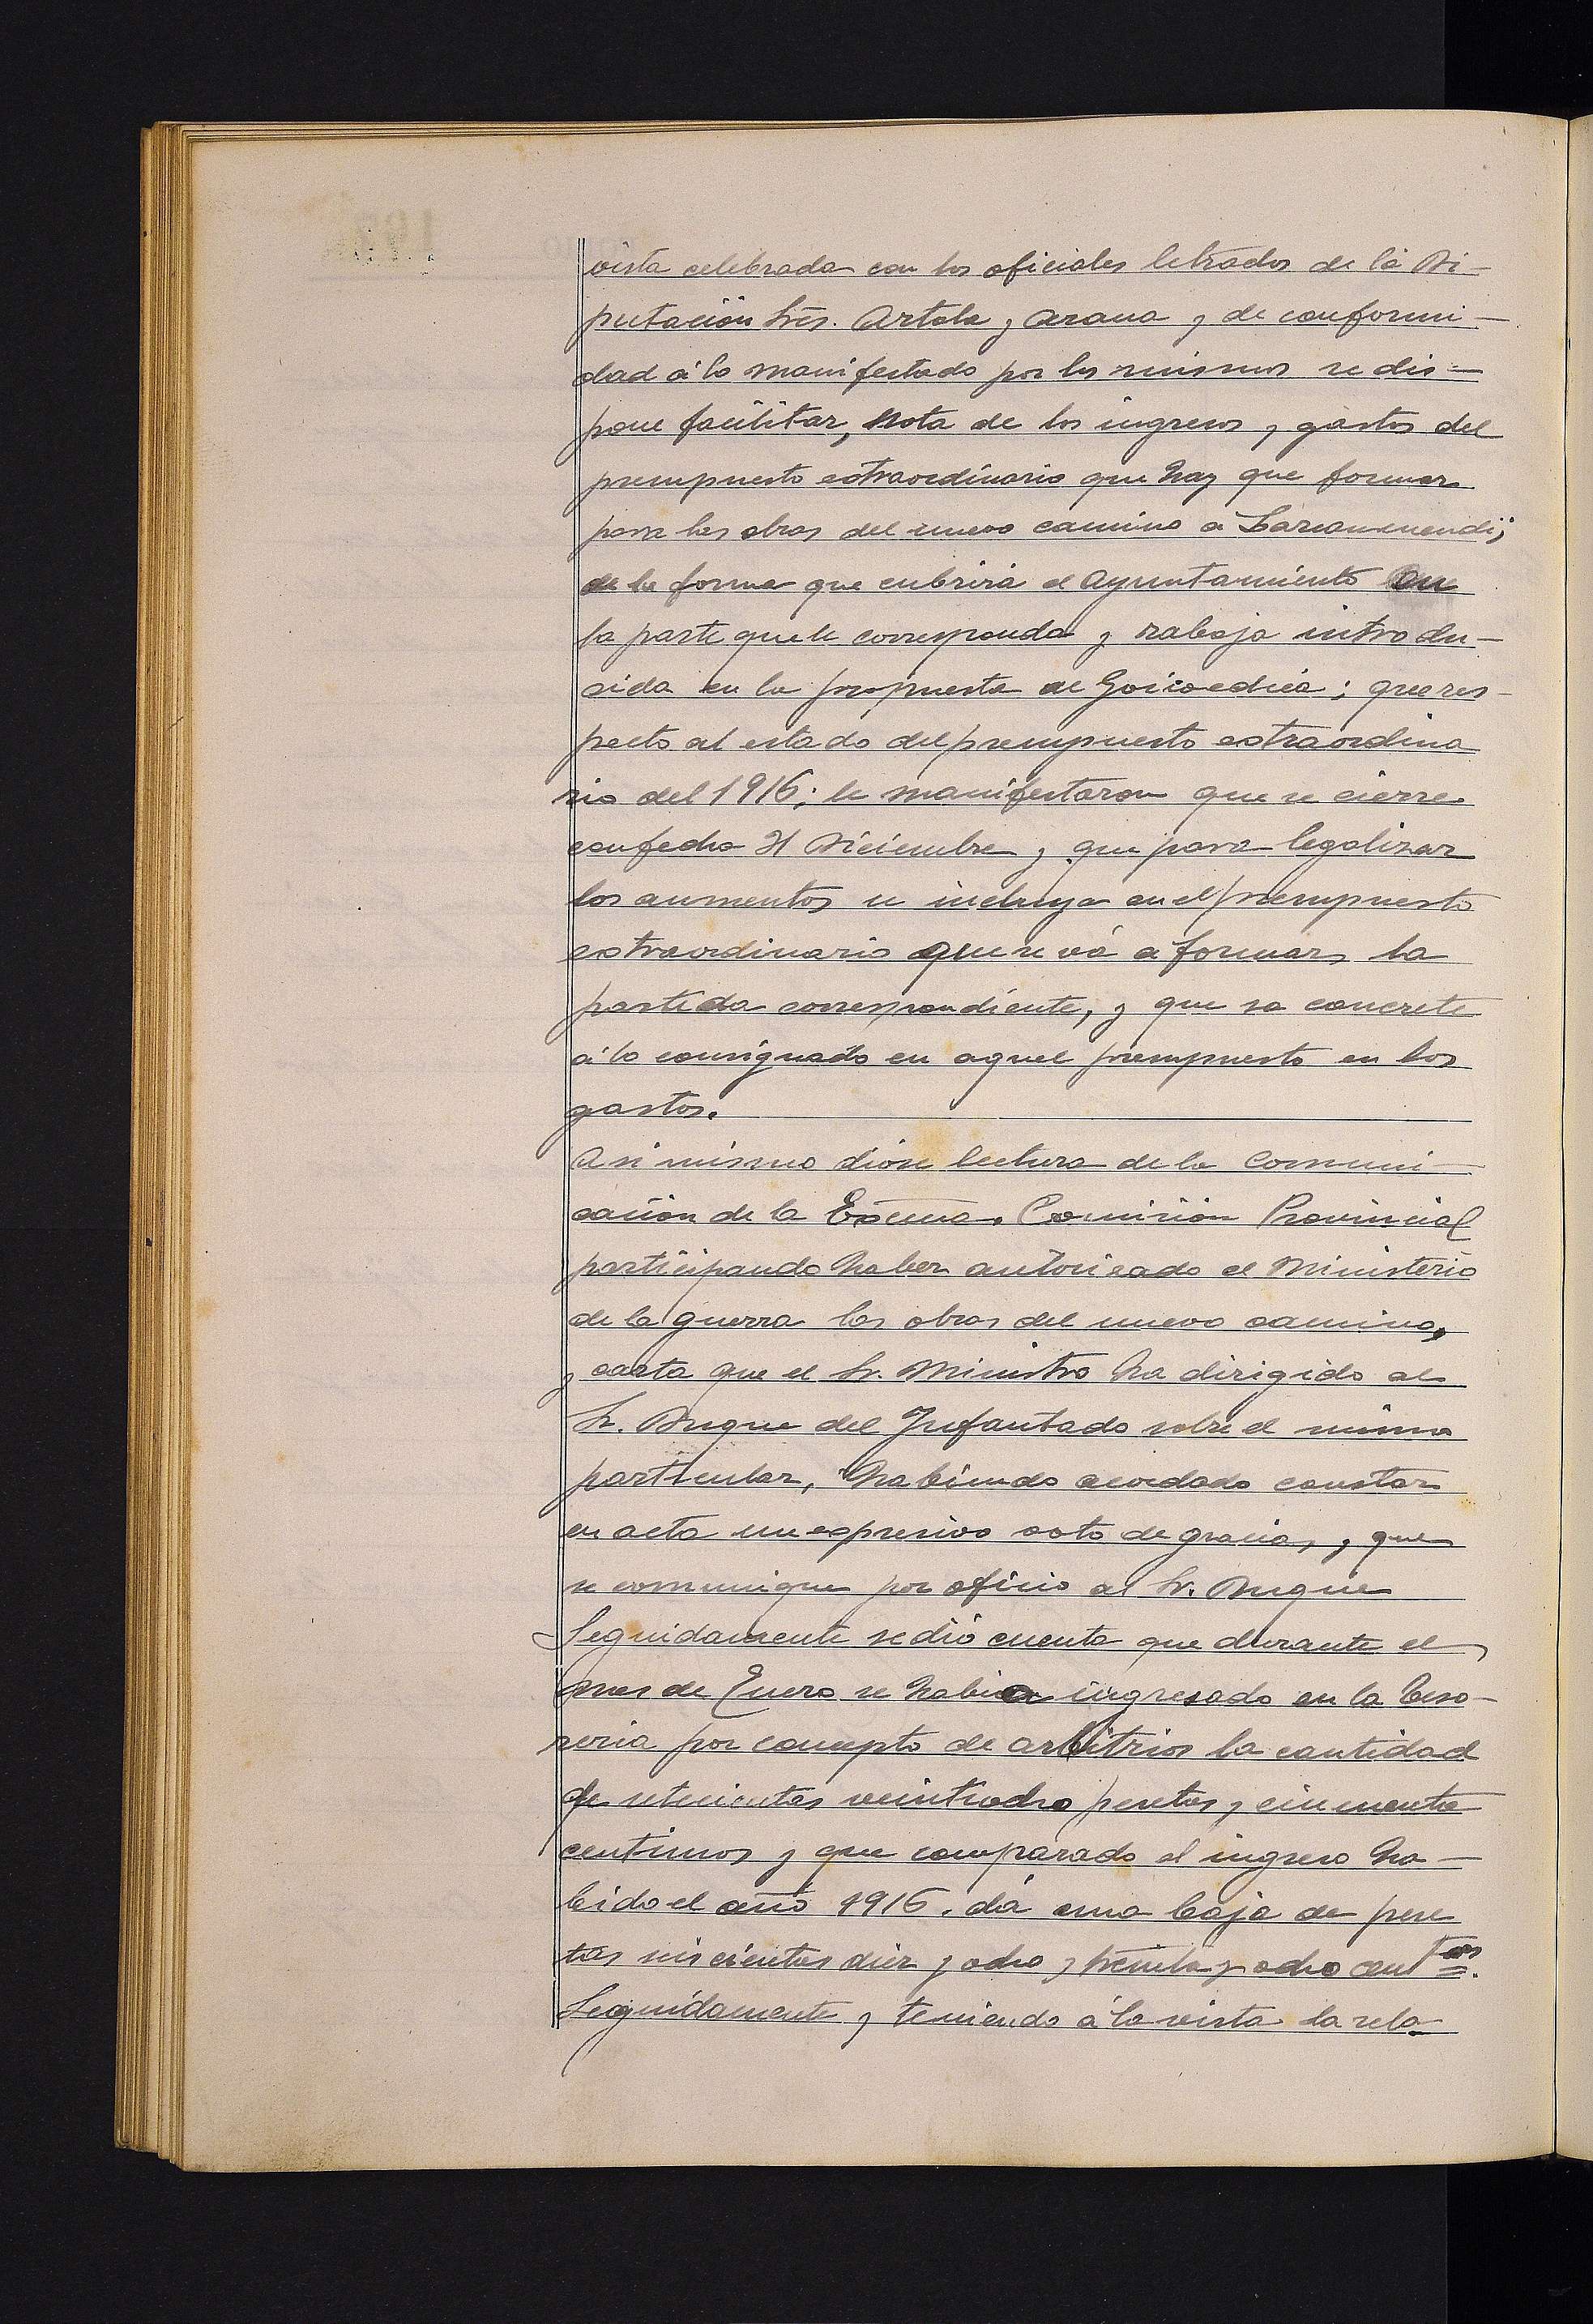 vista celebrada con los oficiales letrados de la Di-
putación Srēs. Artola y Arana y de conformi-
dad á lo manifestado por los mismos se dis-
pone facilitar, nota de los ingresos y gastos del
presupuesto estraordinario que hay que formar
para las obras del nuevo camino a
de la forma que cubrirá el Ayuntamiento en
la parte que le corresponda y rabaja introdu-
cida en la propuesta de Goicoechea; que res-
pecto al estado del presupuesto estraordina
rio del 1916; le manifestaron que se cierre
con fecha 31 Diciembre y que para legalizar
los aumentos se incluya en el presupuesto
estraordinario que se vá a formar, la
partida correspondiente, y que se concrete
á lo consignado en aquel presupuesto en los
gastos.
Asi mismo dióse lectura de la comuni-
cación de la Excma. Comisión Provincial
participando haber autorizado el Ministerio
de la guerra las obras del nuevo camino,
y carta que el Sr. Ministro ha dirigido al
Sr. Duque del Infantado sobre el mismo
particular, habiendo acordado constar
en acta un expresivo voto de gracias, y que
se comunique por oficio al Sr. Duque
Seguidamente se dió cuenta que durante el
mes de Enero se habia ingresado en la teso-
reria por concepto de arbitrios la cantidad
de setecientas veintiocho pesetas y cincuenta
centimos y que comparado al ingreso ha-
bido el año 1916. dá una baja de pese
tas seiscientas diez y ocho y treinta y ocho centos.
Seguidamente y teniendo á la vista la rela-